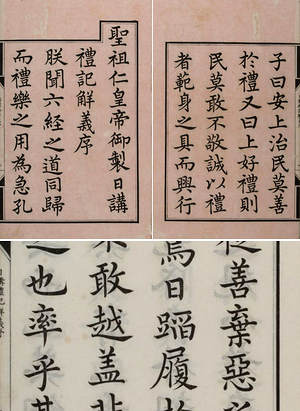 聖祖仁皇帝御製日講
禮記解義序
朕聞六經之道同歸
而禮樂之用為急孔
子曰安上治民莫善
於禮又曰上好禮則
民莫敢不敬誠以禮
者範身之具而興行
善棄惡
焉日蹈履
敢越盖
也率乎